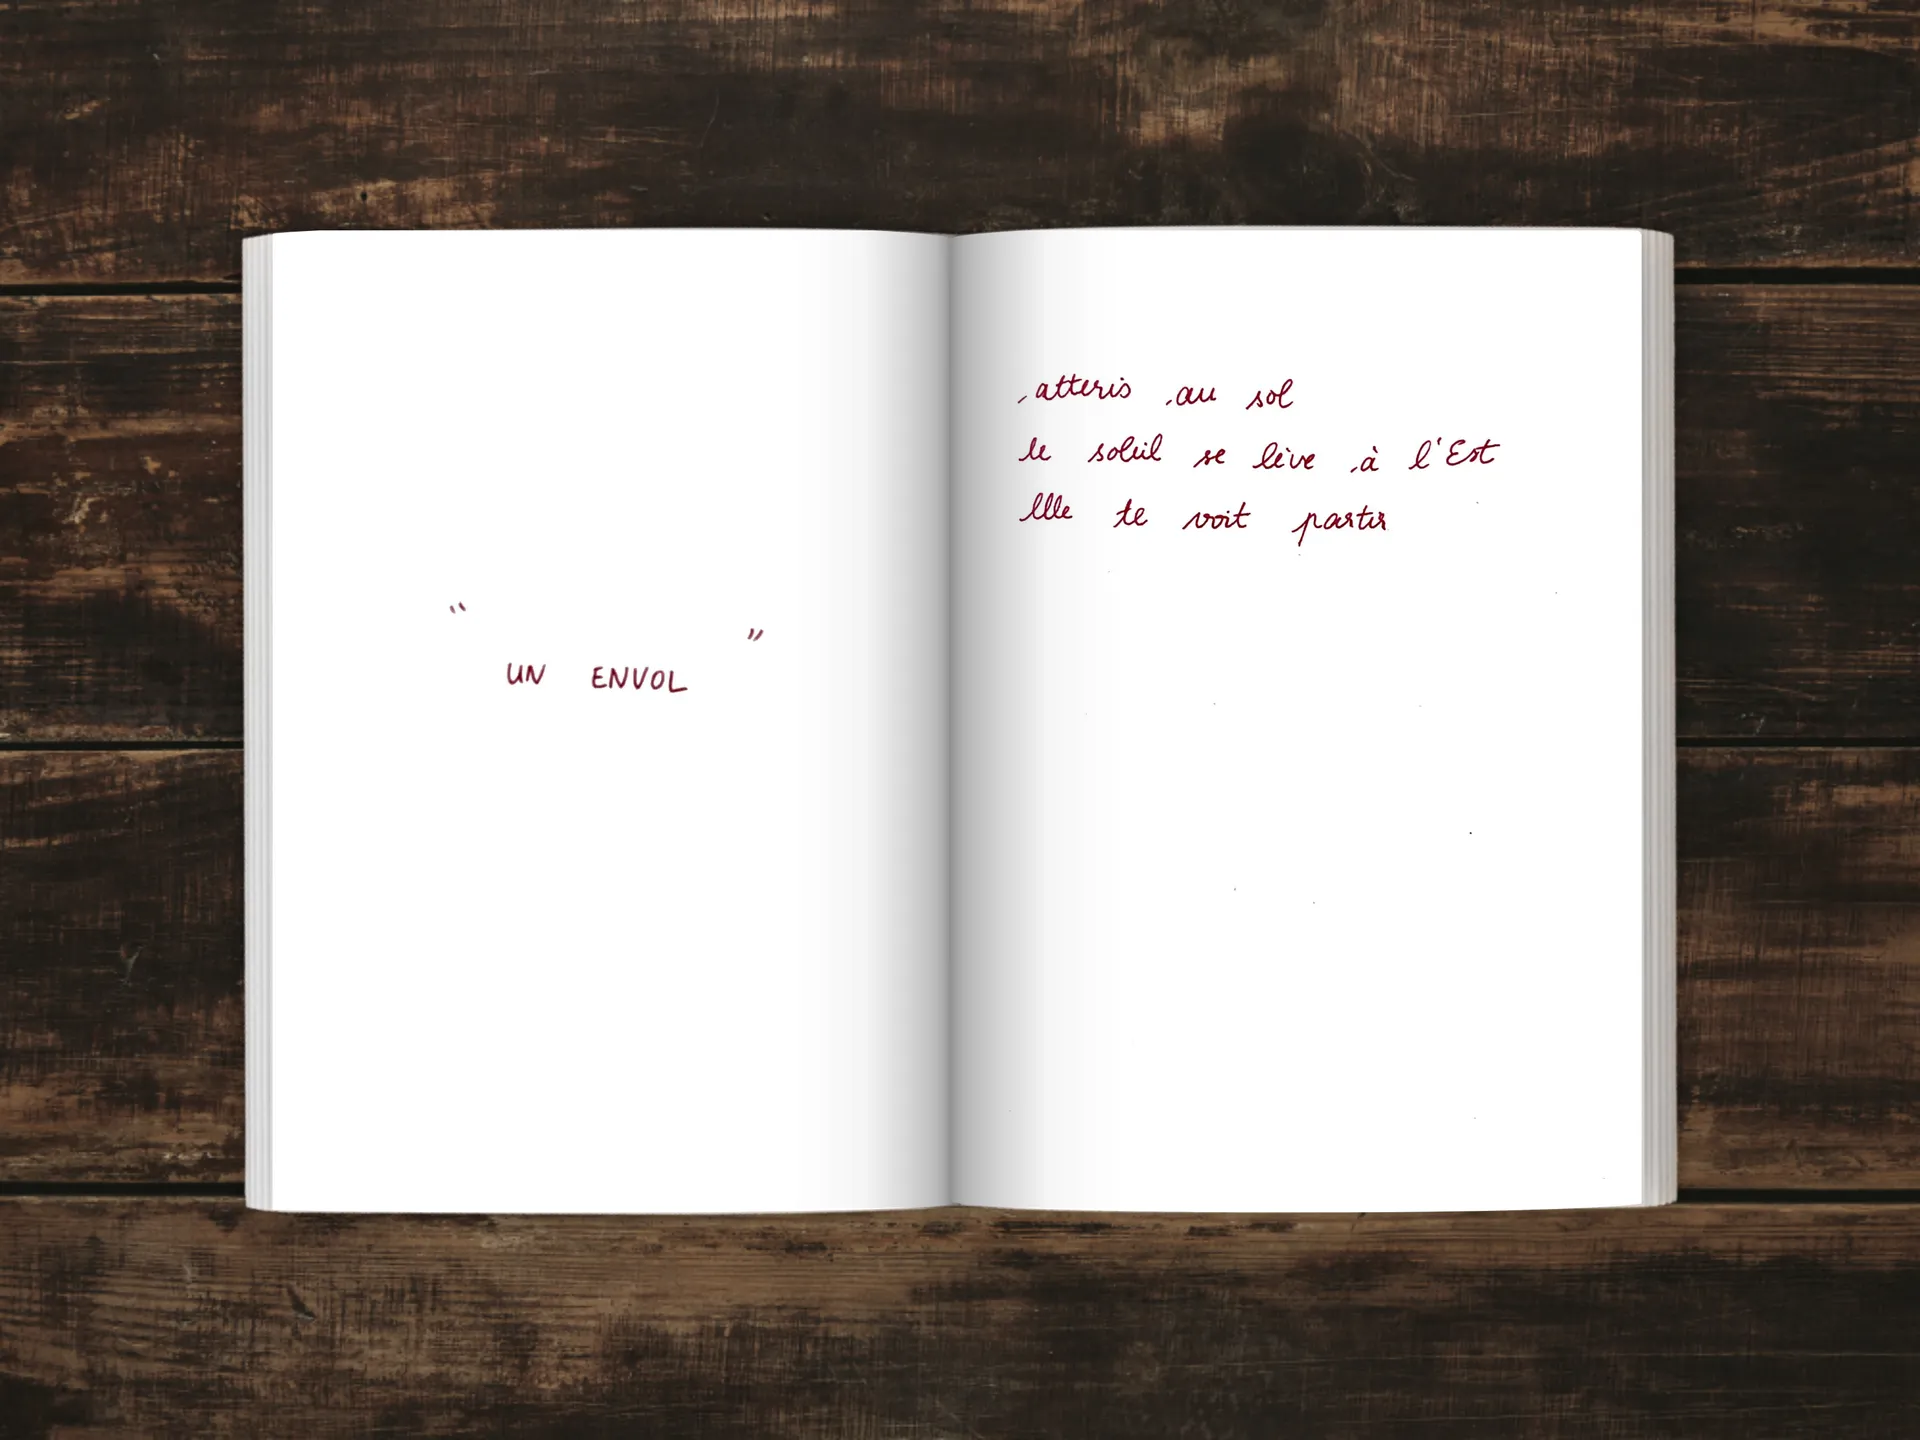 “ ”
UN ENVOL
atteris au sol
le soleil se lève à l'Est
Elle te voit partir